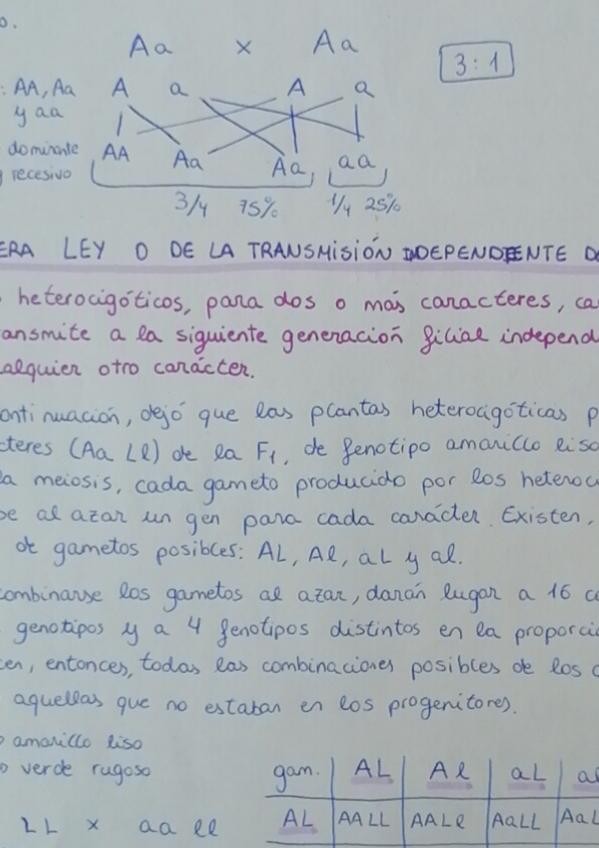 Aa x Aa
3:1
: AA, Aa A a A a
y aa
dominante AA Aa Aa, aa,
y recesivo
3/4 75% 1/4 25%
ERA LEY O DE LA TRANSMISIÓN INDEPENDIENTE DE
heterocigóticos, para dos o más caracteres, ca
ransmite a la siguiente generación filial independ
alquier otro carácter.
ontinuación, dejó que las plantas heterocigóticas p
cteres (Aa Ll) de la F1, de fenotipo amarillo liso
la meiosis, cada gameto producido por los heteroc
be al azar un gen para cada carácter. Existen,
de gametos posibles: AL, Al, aL y al.
combinarse los gametos al azar, darán lugar a 16 c
genotipos y a 4 fenotipos distintos en la proporció
cen, entonces, todas las combinaciones posibles de los
aquellas que no estaban en los progenitores.
o amarillo liso
o verde rugoso
gam. AL Al aL al
LL x aa ll
AL AALL AALl AaLL AaL